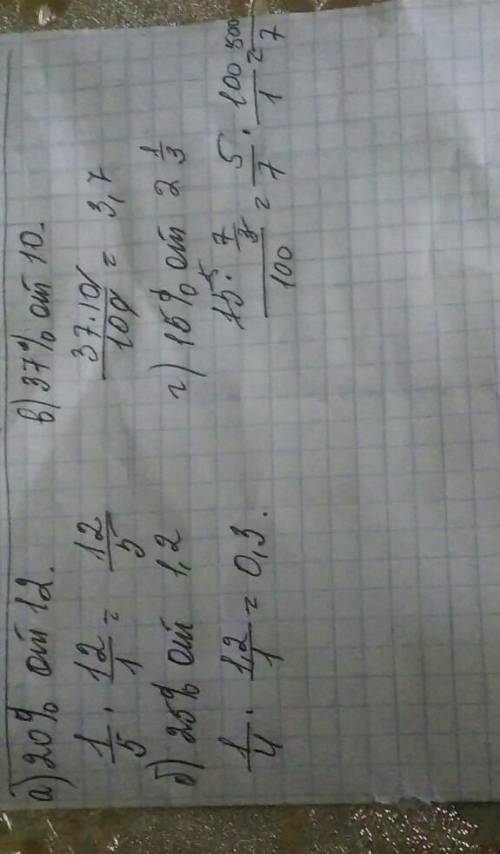 а) 20% от 12.
1/5 · 12/1 = 12/5
б) 25% от 1,2
1/4 · 1,2/1 = 0,3.
в) 37% от 10.
37·10/100 = 3,7
г) 15% от 2 1/3
15 5 · 7/3 / 100 = 5/7 · 100/1 = 500/7